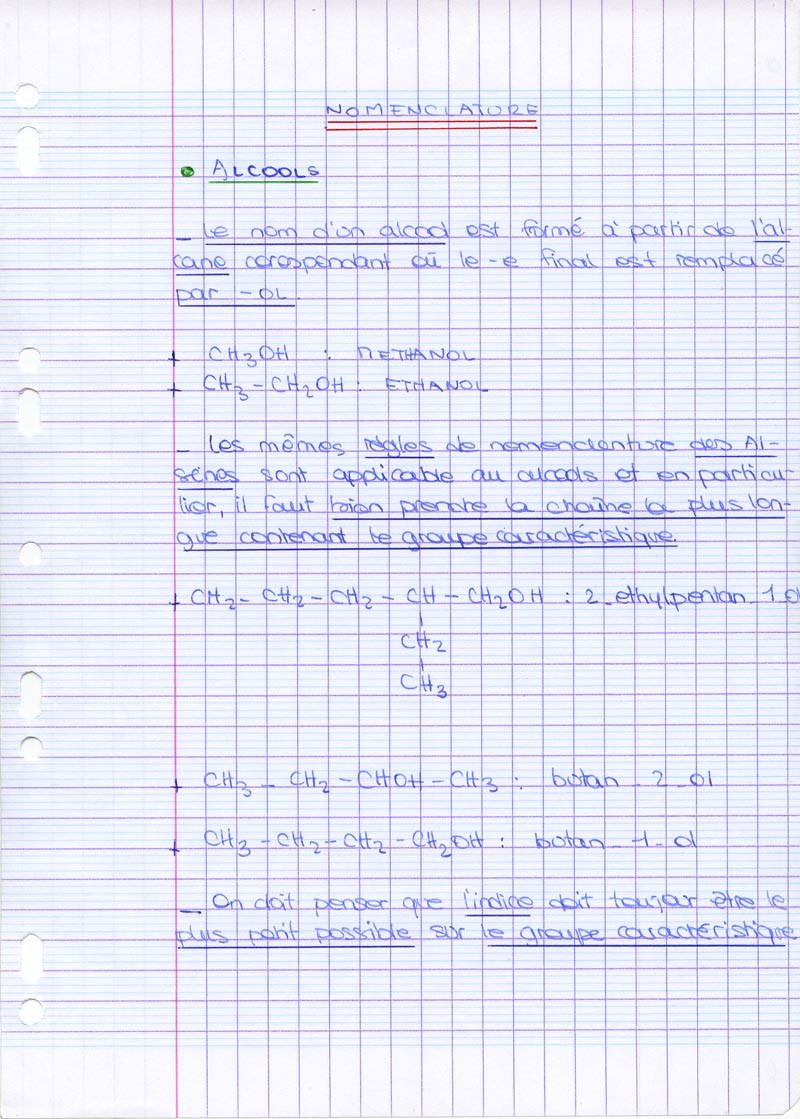 NOMENCLATURE
• ALCOOLS
_ Le nom d'un alcool est formé à partir de l'al-
cane corespondant où le -e final est remplacé
par -OL.
+ CH3OH : METHANOL
+ CH3 - CH2OH : ETHANOL
_ Les mêmes règles de nomenclanture des Al-
sènes sont applicable au alcools et en particu-
lier, il faut bien prendre la chaîne la plus lon-
gue contenant le groupe caractéristique.
+ CH2 - CH2 - CH2 - CH - CH2OH : 2_ethylpentan_1_ol
CH2
CH3
+ CH3 - CH2 - CHOH - CH3 : butan _ 2 _ ol
+ CH3 - CH2 - CH2 - CH2OH : butan _ 1 _ ol
_ On doit penser que l'indice doit toujour être le
plus petit possible sur le groupe caractéristique